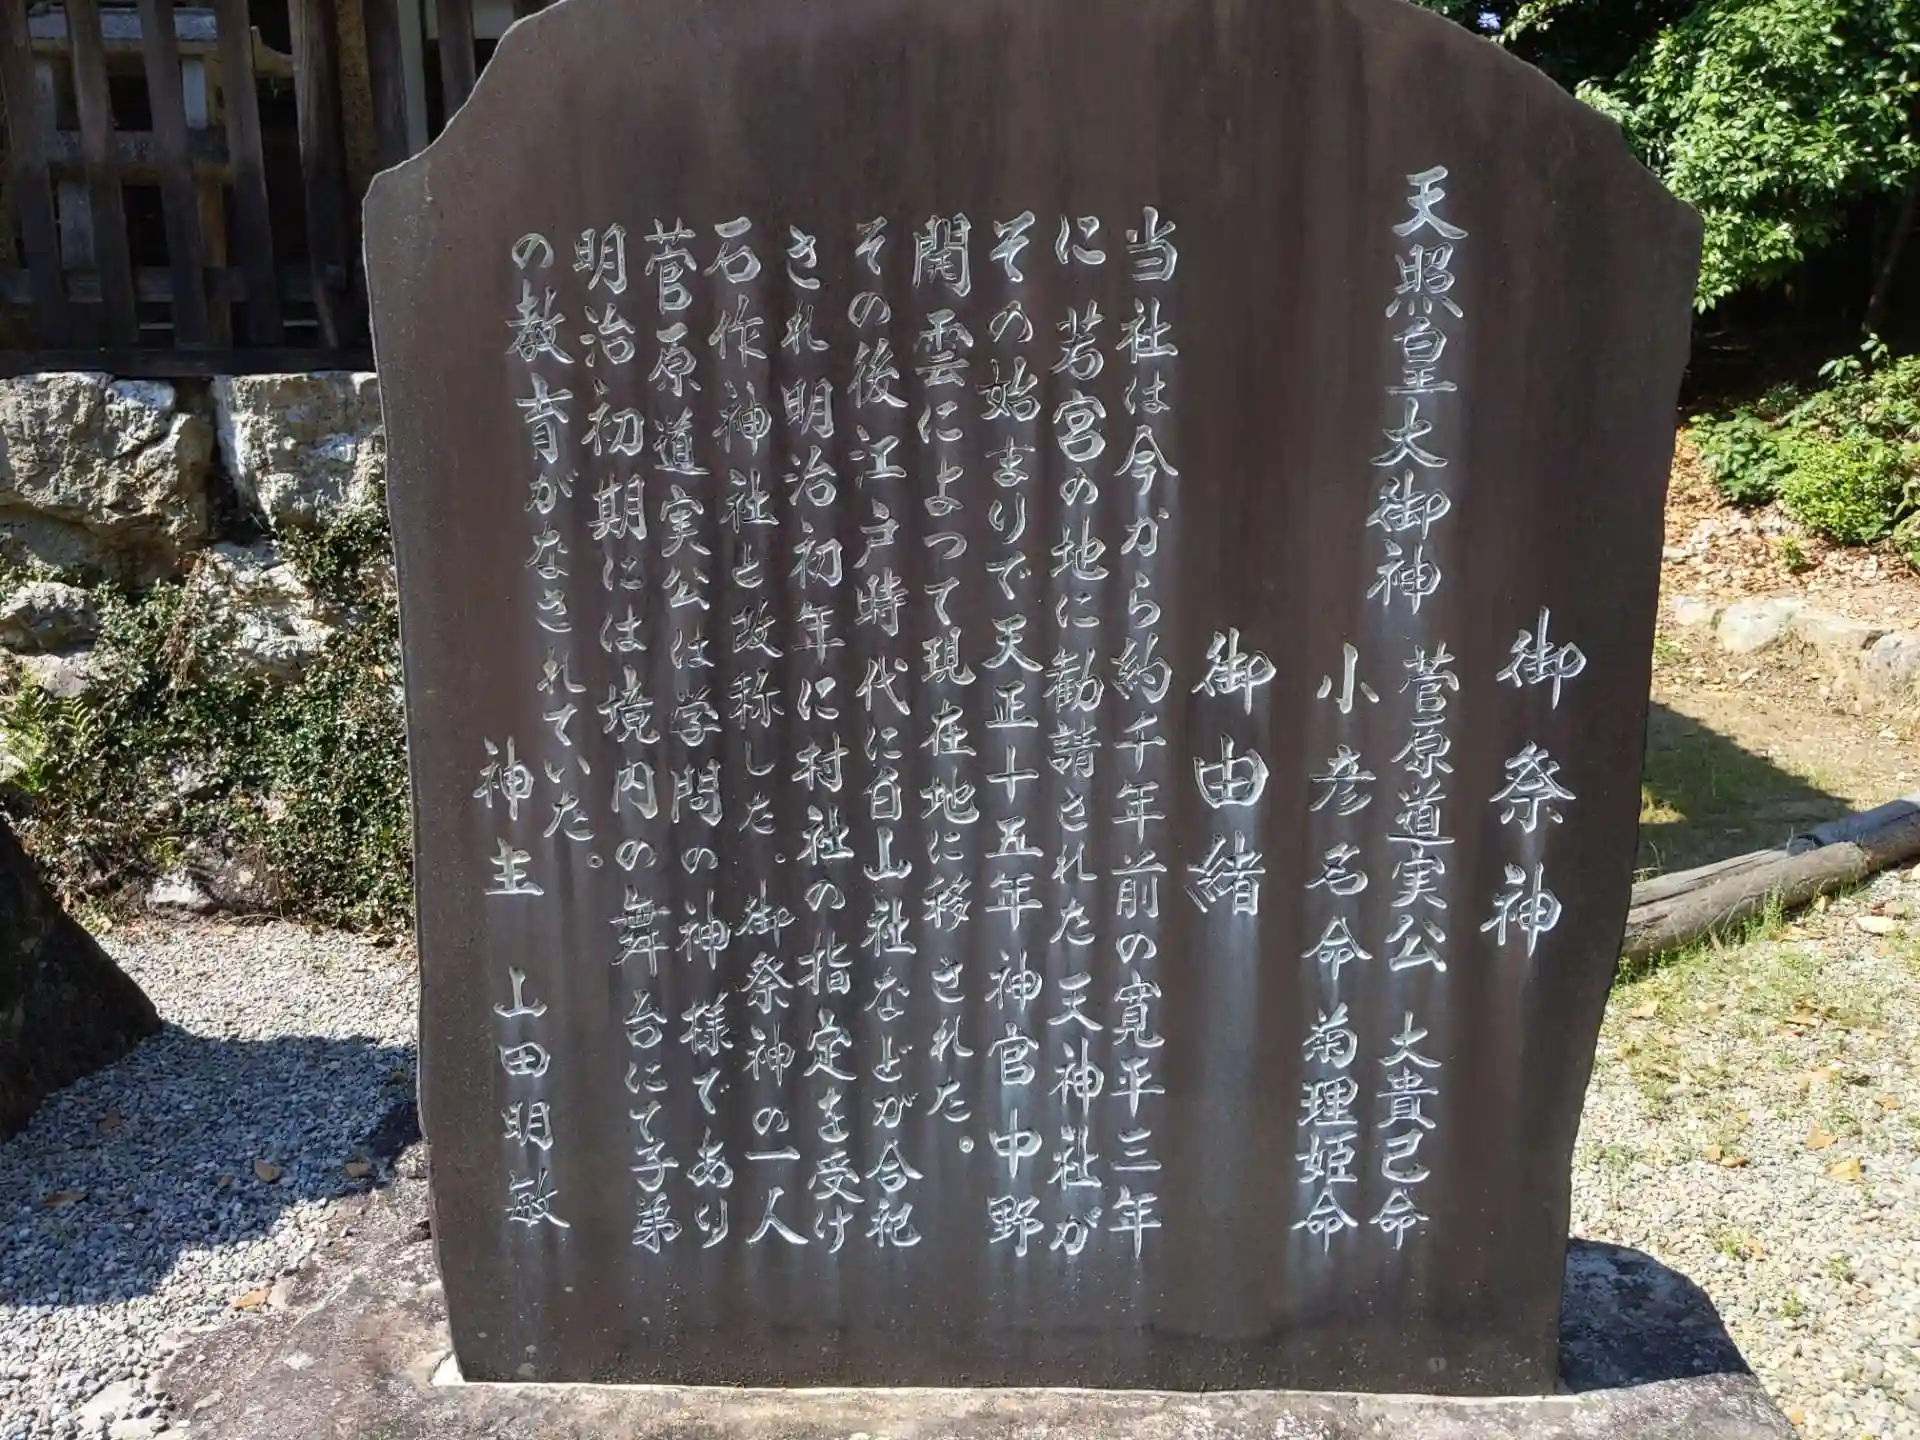 御祭神
天照皇大御神 菅原道実公 大貴己命
小彦名命 菊理姫命
御由緒
当社は今から約千年前の寛平三年
に若宮の地に勧請された天神社が
その始まりで天正十五年神官中野
関雲によつて現在地に移された。
その後江戸時代に白山社などが合祀
され明治初年に村社の指定を受け
石作神社と改称した。御祭神の一人
菅原道実公は学問の神様であり
明治初期には境内の舞台にて子弟
の教育がなされていた。
神主 山田明敏